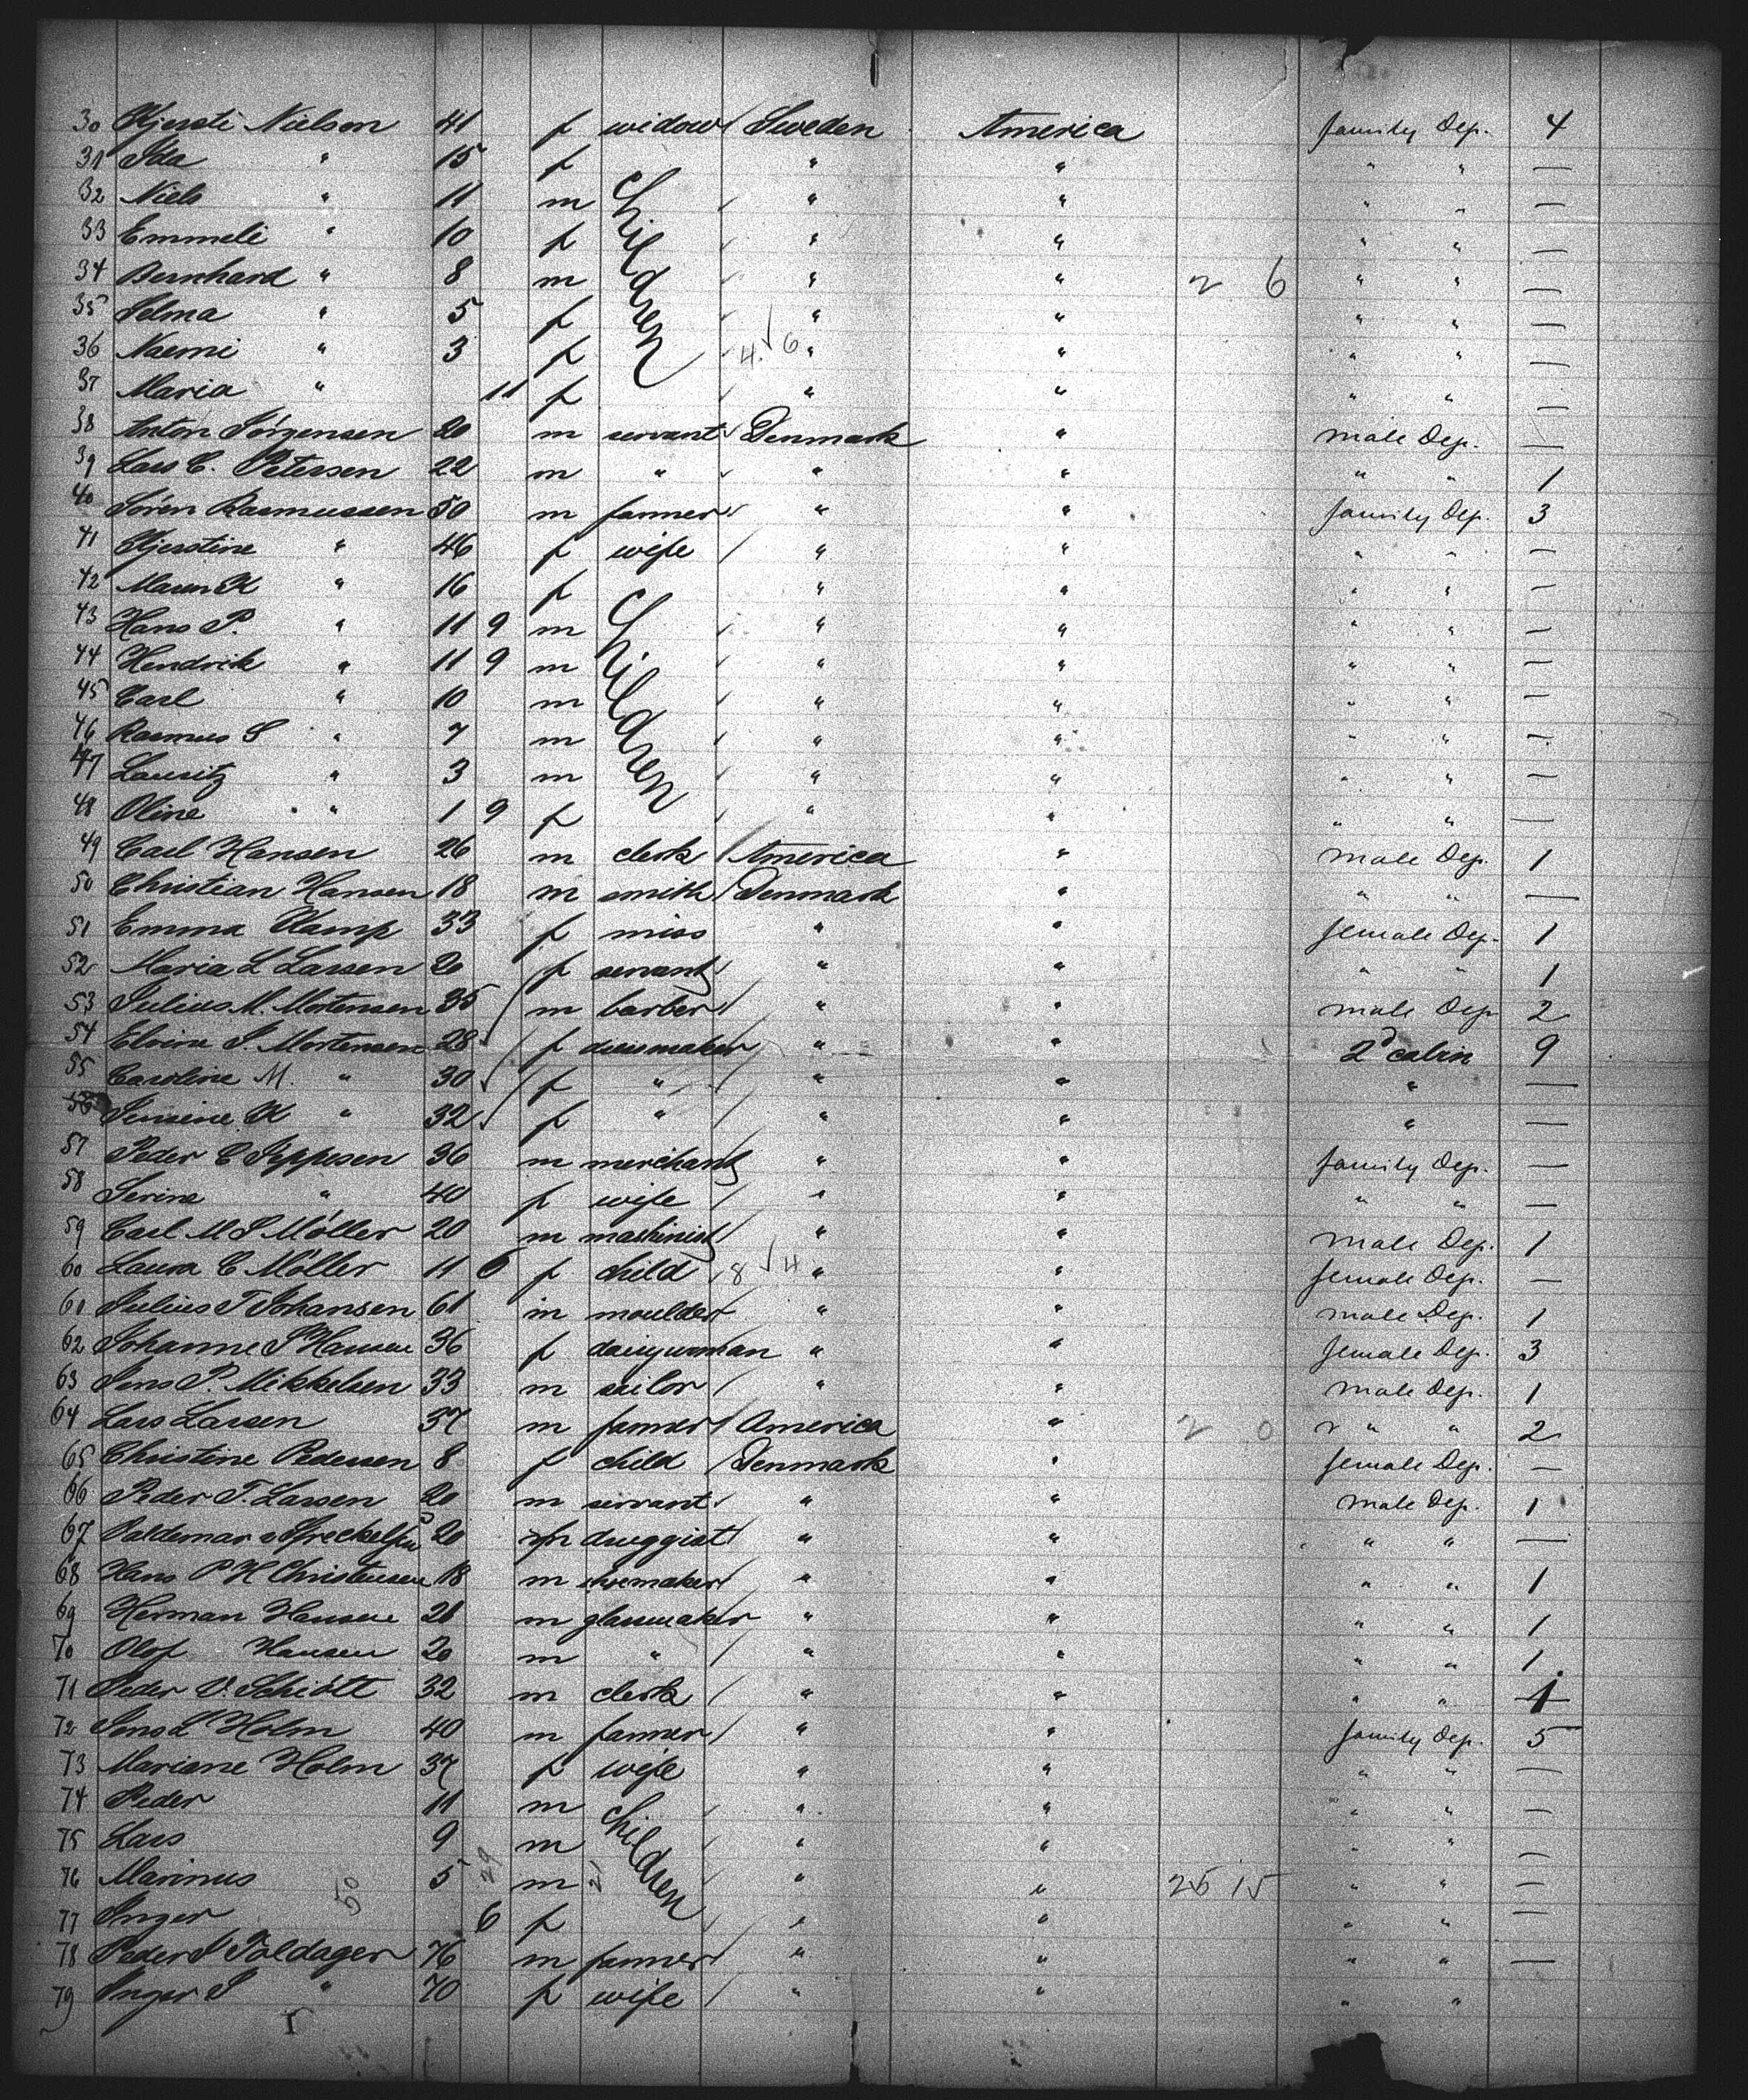 30 Kjersti Nielson 41 f widow Sweden America family Dep. 4
31 Ida " 15 f " " " " —
32 Niels " 11 m children " " " " —
33 Emmeli " 10 f " " " " —
34 Bernhard " 8 m " " 2 6 " " —
35 Selma " 5 f " " " " —
36 Naemi " 3 f 4 ✓ 6 " " " " —
37 Maria " 11 f " " " " —
38 Anton Jörgensen 20 m servant Denmark " male Dep. —
39 Lars C. Petersen 22 m " " " " " 1
40 Sören Rasmussen 50 m farmer " " family Dep. 3
41 Kjerstine " 46 f wife " " " " —
42 Maren K " 16 f " " " " —
43 Hans P. " 11 9 m children " " " " —
44 Hendrik " 11 9 m " " " " —
45 Carl " 10 m " " " " —
46 Rasmus S " 7 m " " " " —
47 Lauritz " 3 m " " " " —
48 Oline " 1 9 f " " " " —
49 Carl Hansen 26 m clerk America " male Dep. 1
50 Christian Hansen 18 m smith Denmark " " " —
51 Emma Kamp 33 f miss " " female Dep. 1
52 Maria L Larsen 20 f servant " " " " 1
53 Julius M. Mortensen 35 m barber " " male Dep 2
54 Elvina J. Mortensen 28 f dressmaker " " 2d cabin 9
55 Caroline M. " 30 f " " " " —
56 Jensine K " 32 f " " " " —
57 Peder C Jeppesen 36 m merchant " " family Dep. —
58 Serine " 40 f wife " " " " —
59 Carl M S Möller 20 m mashinist " " male Dep. 1
60 Laura C Möller 11 6 f child 8 ✓ 4 " " female Dep. —
61 Julius T Johansen 61 m moulder " " male Dep. 1
62 Johanne S Hansen 36 f dairywoman " " female Dep. 3
63 Jens P. Mikkelsen 33 m sailor " " male Dep. 1
64 Lars Larsen 37 m farmer America " 2 0 " " 2
65 Christine Pedersen 8 f child Denmark " female Dep. —
66 Peder T. Larsen 20 m servant " " male Dep. 1
67 Valdemar v Spreckelsen 20 m druggist " " " " —
68 Hans P H Christensen 18 m shoemaker " " " " 1
69 Herman Hansen 21 m glassmaker " " " " 1
70 Olof Hansen 20 m " " " " " 1
71 Peder V. Schiött 32 m clerk " " " " 1
72 Jens L Holm 40 m farmer " " family Dep. 5
73 Mariane Holm 37 f wife " " " " —
74 Peder 11 m children " " " " —
75 Lars 9 m " " " " —
76 Marinus 50 5 29 m 21 " " 25 15 " " —
77 Inger 6 f " " " " —
78 Peder J Toldager 76 m farmer " " " " —
79 Inger S " 70 f wife " " " "